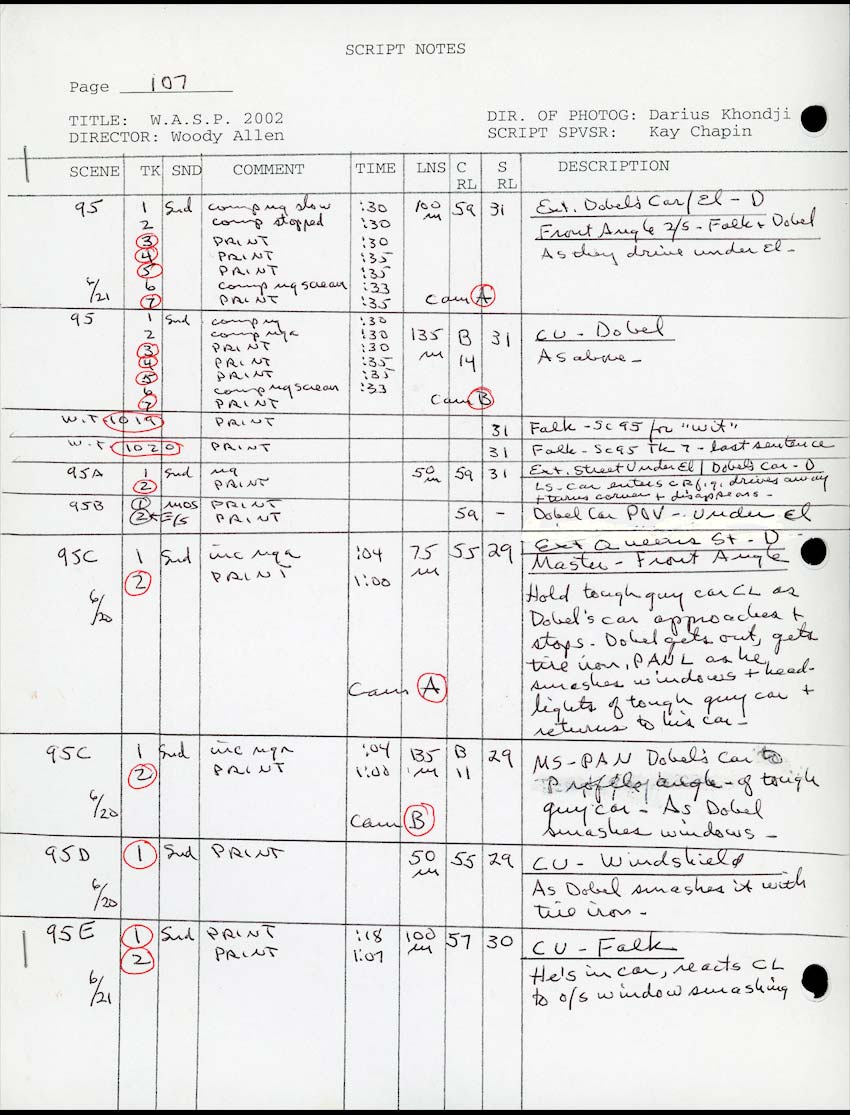 SCRIPT NOTES
Page 107
TITLE: W.A.S.P. 2002
DIRECTOR: Woody Allen
DIR. OF PHOTOG: Darius Khondji
SCRIPT SPVSR: Kay Chapin
SCENE TK SND COMMENT TIME LNS C RL S RL DESCRIPTION
95 1 Snd comp ng slow :30 100 m 59 31 Ext. Dobel's Car/El - D
2 comp stopped :30 Front Angle 2/S - Falk + Dobel
3 PRINT :30 As they drive under El -
4 PRINT :35
5 PRINT :35
6/21 6 comp ng :33
7 PRINT :35 Cam A
95 1 Snd comp ng :30 135 m B 14 31 CU - Dobel
2 comp nga :30 As above -
3 PRINT :30
4 PRINT :35
5 PRINT :35
6 comp ng :33
7 PRINT Cam B
W.T. 1019 PRINT 31 Falk - Sc 95 for "wit"
W.T 1020 PRINT 31 Falk - Sc95 Tk 7 - last sentence
95A 1 Snd ng 50 m 59 31 Ext. Street Under El / Dobel's Car - D
2 PRINT LS - Car enters drives away
+ turns corner + disappears -
95B 1 MOS PRINT 59 - Dobel Car POV - Under El
2 E/S PRINT
95C 1 Snd inc nga :04 75 m 55 29 Ext Queens St - D
2 PRINT 1:00 Master - Front Angle
6/20 Hold tough guy car CL as
Dobel's car approaches +
stops - Dobel gets out, gets
tire iron, PAN L as he
smashes windows + head-
lights of tough guy car +
returns to his car -
Cam A
95C 1 Snd inc nga :04 135 m B 11 29 MS - PAN Dobel's Car to
2 PRINT 1:00 Profile angle - of tough
6/20 Cam B guy car - As Dobel
smashes windows -
95D 1 Snd PRINT 50 m 55 29 CU - Windshield
6/20 As Dobel smashes it with
tire iron -
95E 1 Snd PRINT :18 100 m 57 30 CU - Falk
2 PRINT 1:07 He's in car, reacts CL
6/21 to o/s window smashing